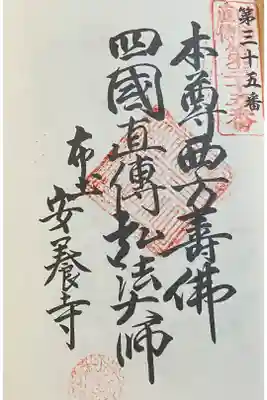 第三十五番
本尊西方壽佛
四國直傳弘法大師
布土
安養寺